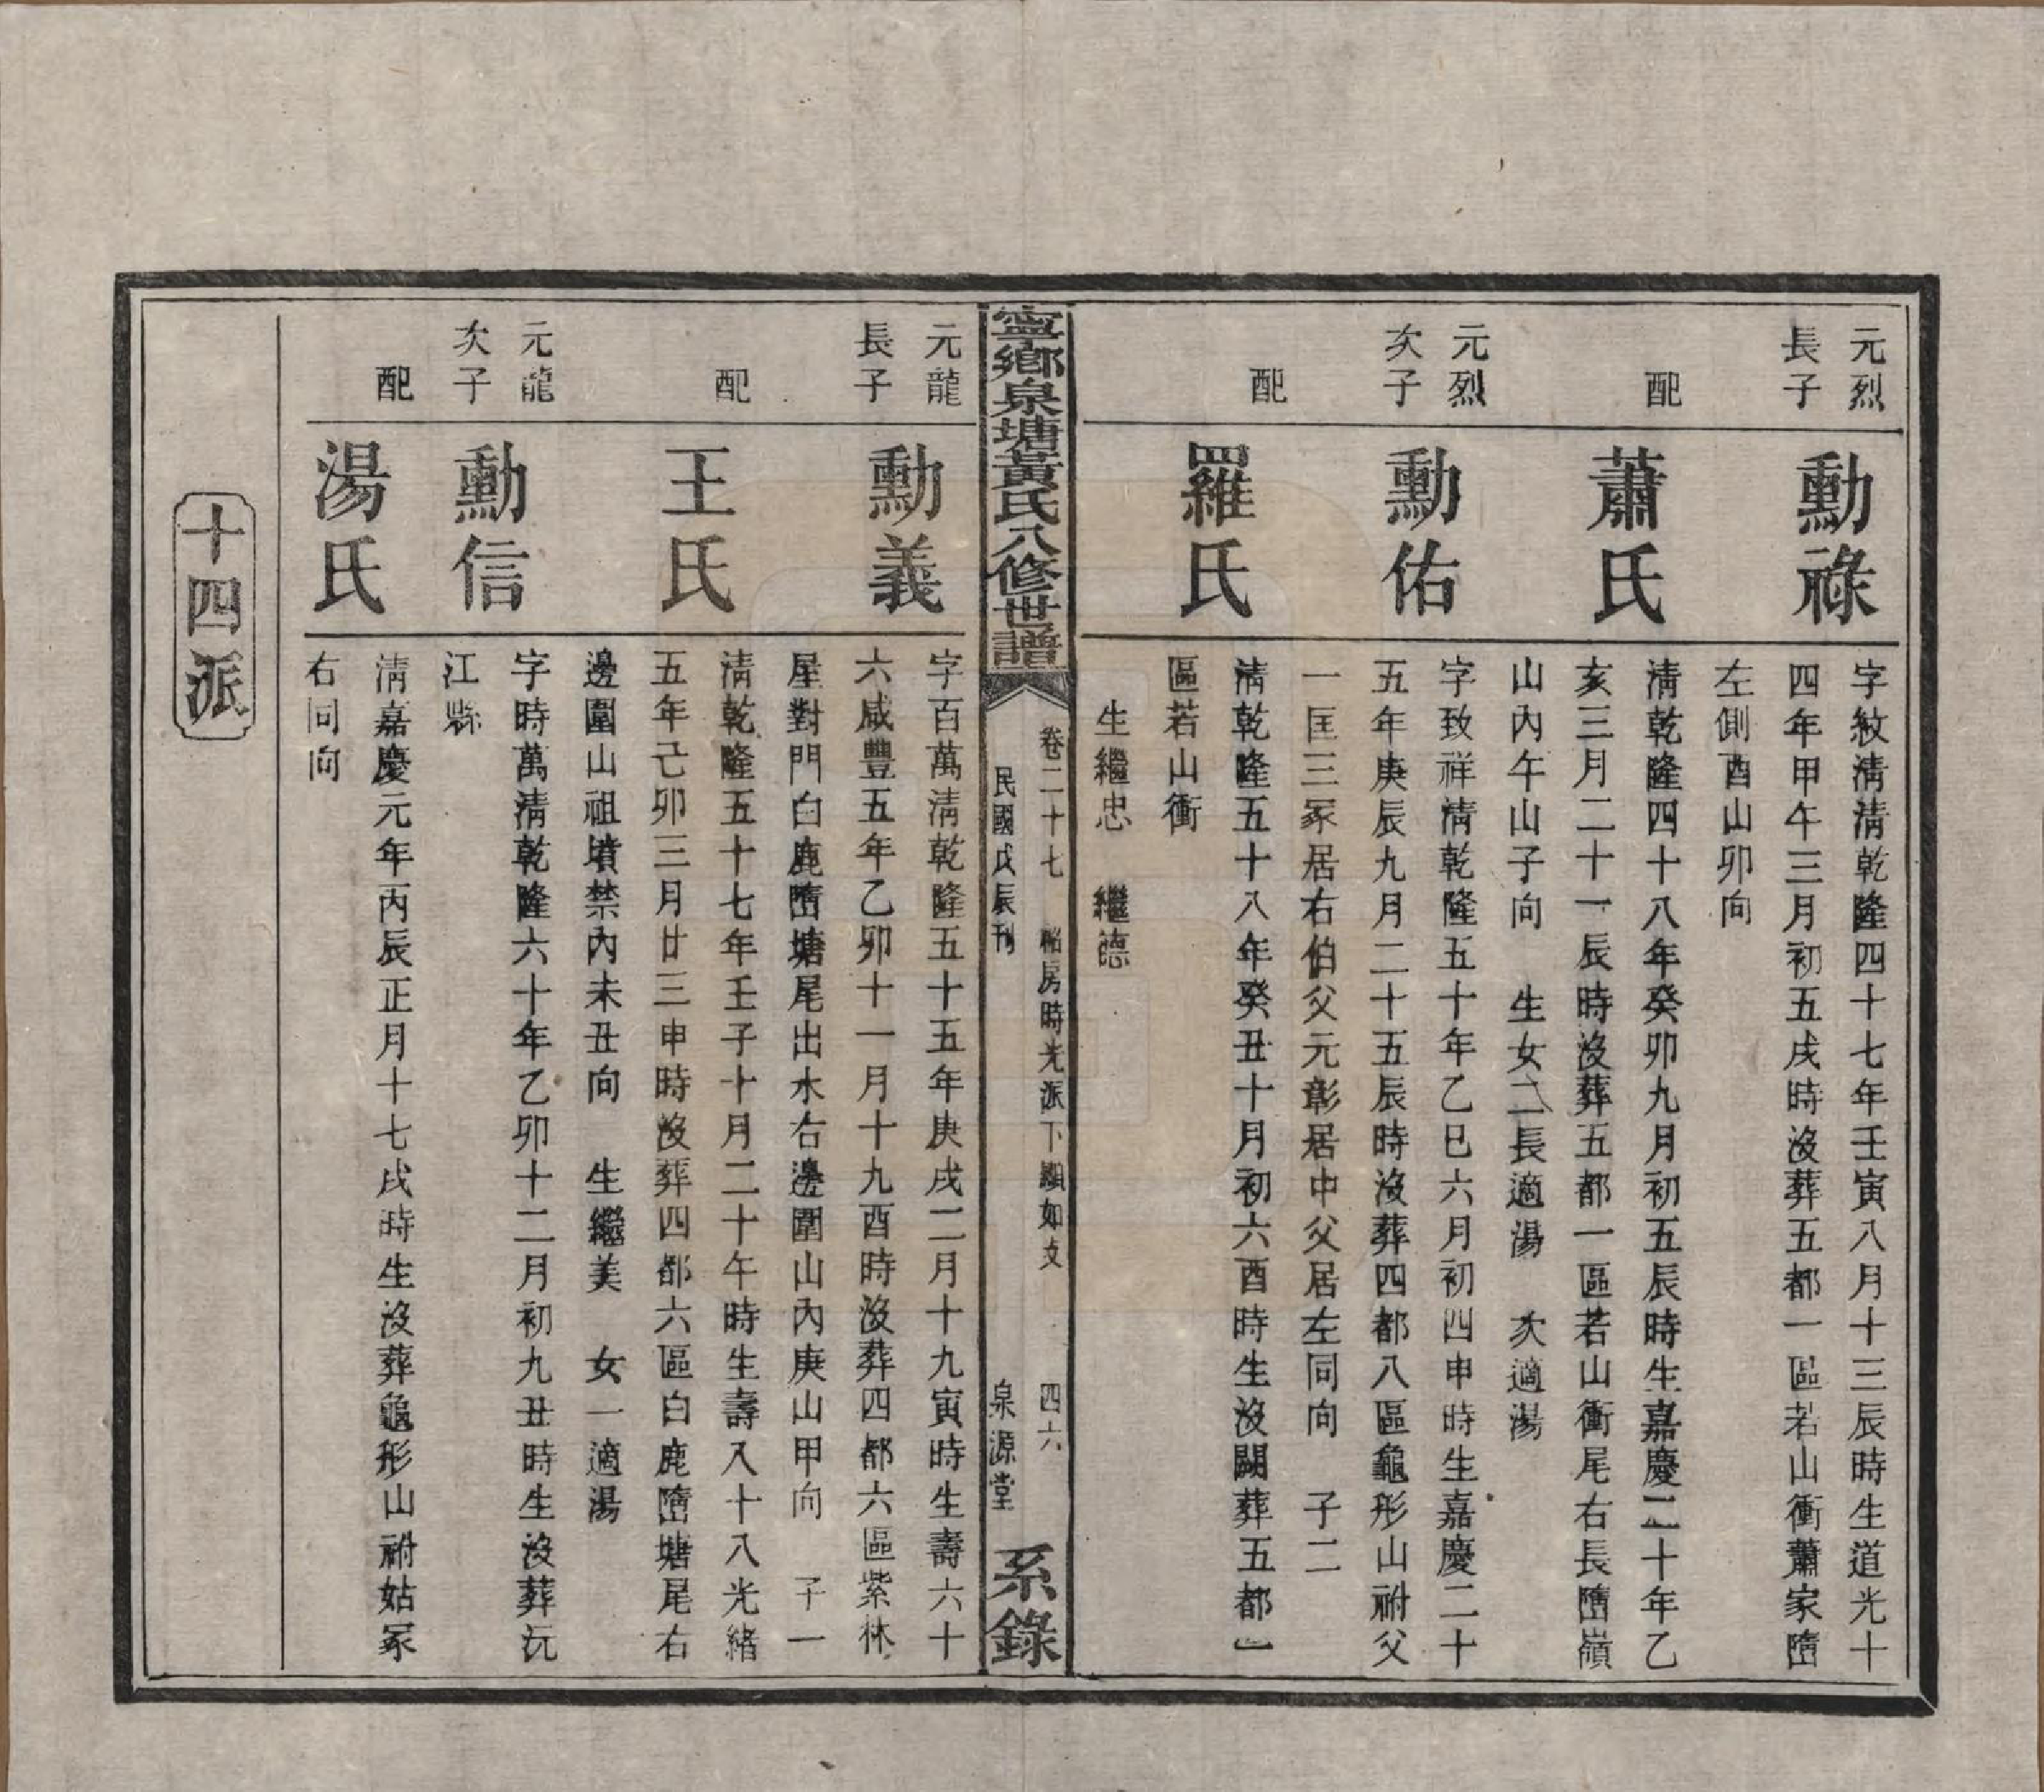 元烈
長子
勳祿
字紋清清乾隆四十七年壬寅八月十三辰時生道光十
四年甲午三月初五戌時沒葬五都一區若山衝蕭家墮
左側酉山卯向
配
蕭氏
清乾隆四十八年癸卯九月初五辰時生嘉慶二十年乙
亥三月二十一辰時沒葬五都一區若山衝尾右長墮嶺
山內午山子向 生女二長適湯 次適湯
元烈
次子
勳佑
字致祥清乾隆五十年乙巳六月初四申時生嘉慶二十
五年庚辰九月二十五辰時沒葬四都八區龜形山祔父
一匡三冢居右伯父元彰居中父居左同向 子二
配
羅氏
清乾隆五十八年癸丑十月初六酉時生沒闕葬五都一
區若山衝
生繼忠 繼德
寧鄉泉塘黃氏八修世譜
卷二十七 房時光派下顯如支 四六
民國戊辰刊 泉源堂
系錄
元龍
長子
勳義
字百萬清乾隆五十五年庚戌二月十九寅時生壽六十
六咸豐五年乙卯十一月十九酉時沒葬四都六區紫林
屋對門白鹿墮塘尾出水右邊圍山內庚山甲向 子一
配
王氏
清乾隆五十七年壬子十月二十午時生壽八十八光緒
五年己卯三月廿三申時沒葬四都六區白鹿墮塘尾右
邊圍山祖墳禁內未丑向 生繼美 女一適湯
元龍
次子
勳信
字時萬清乾隆六十年乙卯十二月初九丑時生沒葬沅
江縣
配
湯氏
清嘉慶元年丙辰正月十七戌時生沒葬龜形山祔姑冢
右同向
十四派